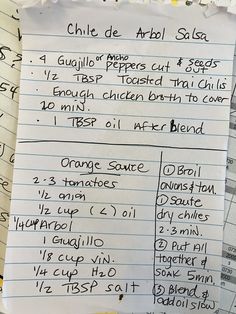 Chile de Arbol Salsa
• 4 Guajillo or Ancho peppers cut & seeds out
• 1/2 TBSP Toasted Thai Chilis
• Enough chicken broth to cover
20 min.
• 1 TBSP oil After blend
Orange Sauce
2-3 tomatoes
1/2 onion
1/2 cup (<) oil
1/4 cup Arbol
1 Guajillo
1/8 cup vin.
1/4 cup H2O
1/2 TBSP salt
① Broil
onions & tom.
① Saute
dry chiles
2-3 min.
② Put All
together &
soak 5 min
③ Blend &
add oil slow